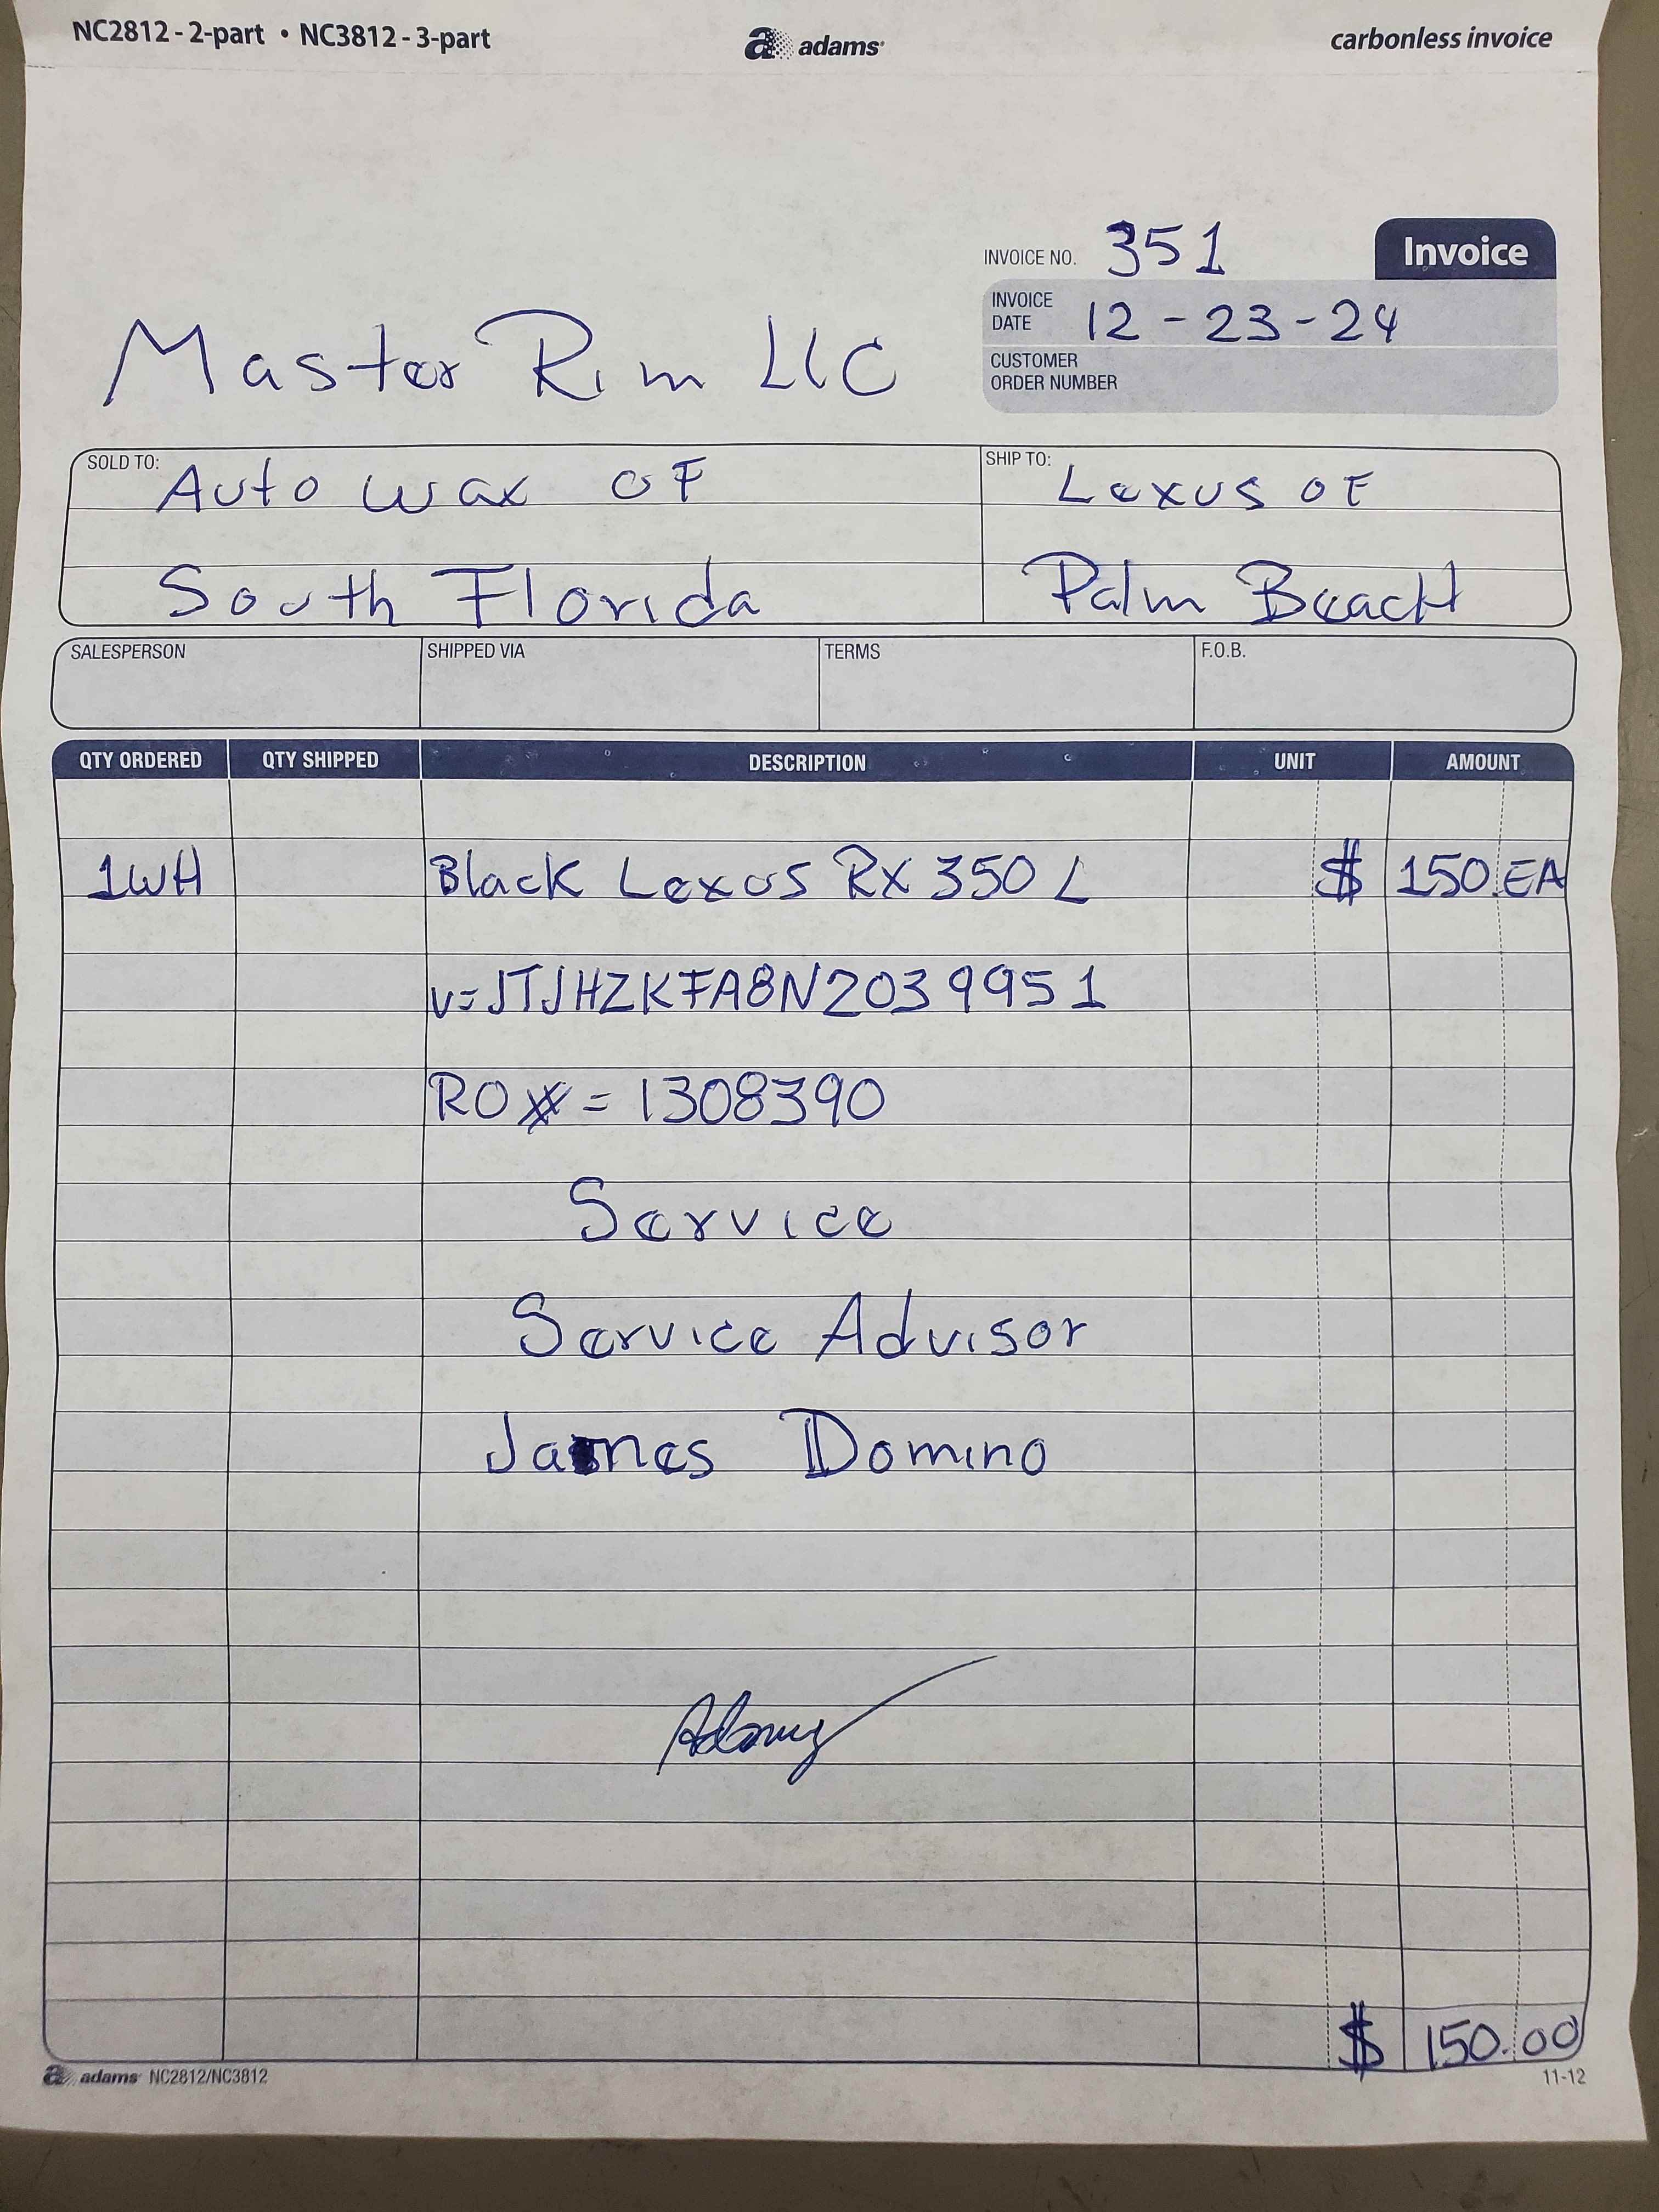 NC2812 - 2-part • NC3812 - 3-part adams carbonless invoice
INVOICE NO. 351 Invoice
INVOICE DATE 12-23-24
Master Rim LLC
CUSTOMER ORDER NUMBER
SOLD TO: Auto Wax OF SHIP TO: Lexus OF
South Florida Palm BeacH
SALESPERSON SHIPPED VIA TERMS F.O.B.
QTY ORDERED QTY SHIPPED DESCRIPTION UNIT AMOUNT
1WH Black Lexus RX 350 L $ 150.EA
V=JTJHZKFA8N2039951
RO#=1308390
Service
Service Advisor
James Domino
$ 150.00
adams NC2812/NC3812 11-12